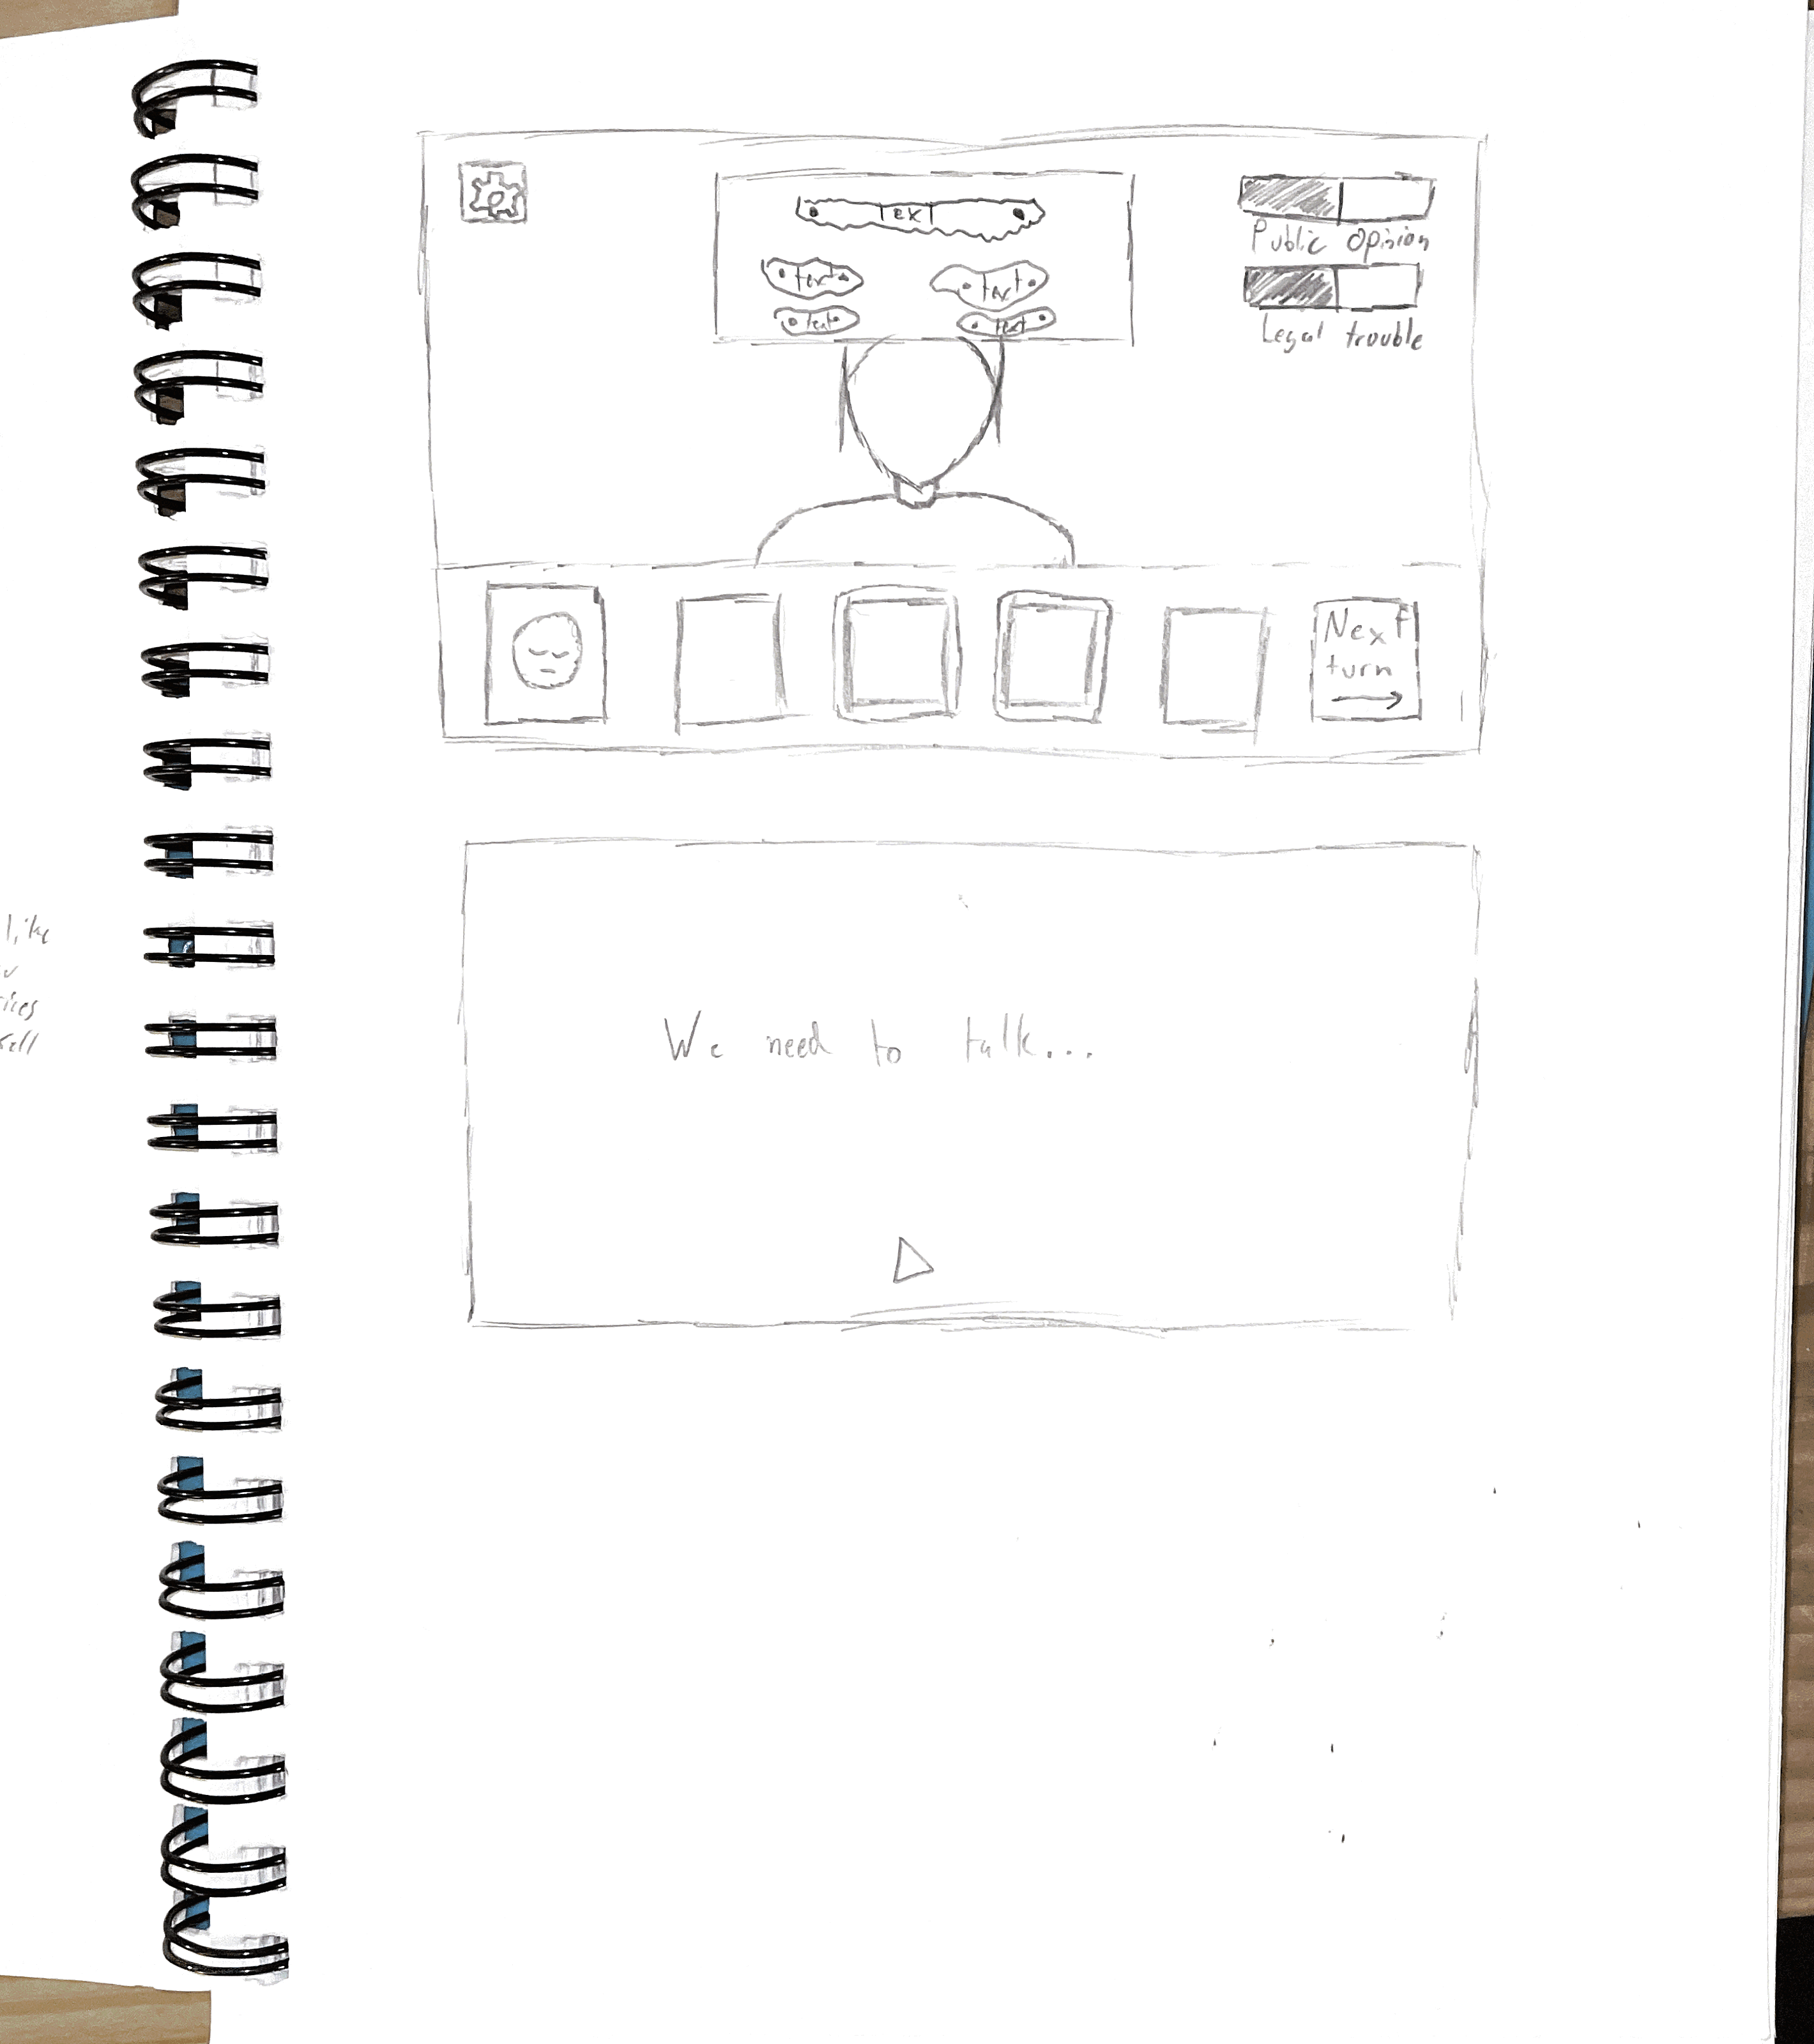 Tex
text
text
text
text
Public Opinion
Legal trouble
Next
turn
We need to talk...
like